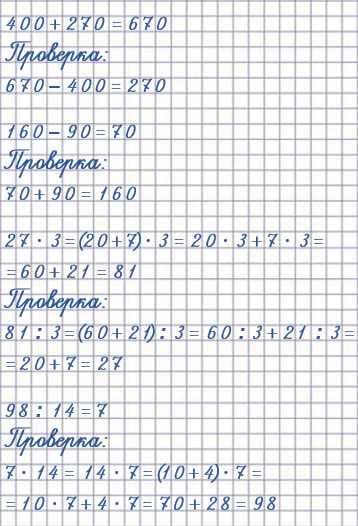 400 + 270 = 670
Проверка:
670 − 400 = 270
160 − 90 = 70
Проверка:
70 + 90 = 160
27 · 3 = (20 + 7) · 3 = 20 · 3 + 7 · 3 =
= 60 + 21 = 81
Проверка:
81 : 3 = (60 + 21) : 3 = 60 : 3 + 21 : 3 =
= 20 + 7 = 27
98 : 14 = 7
Проверка:
7 · 14 = 14 · 7 = (10 + 4) · 7 =
= 10 · 7 + 4 · 7 = 70 + 28 = 98